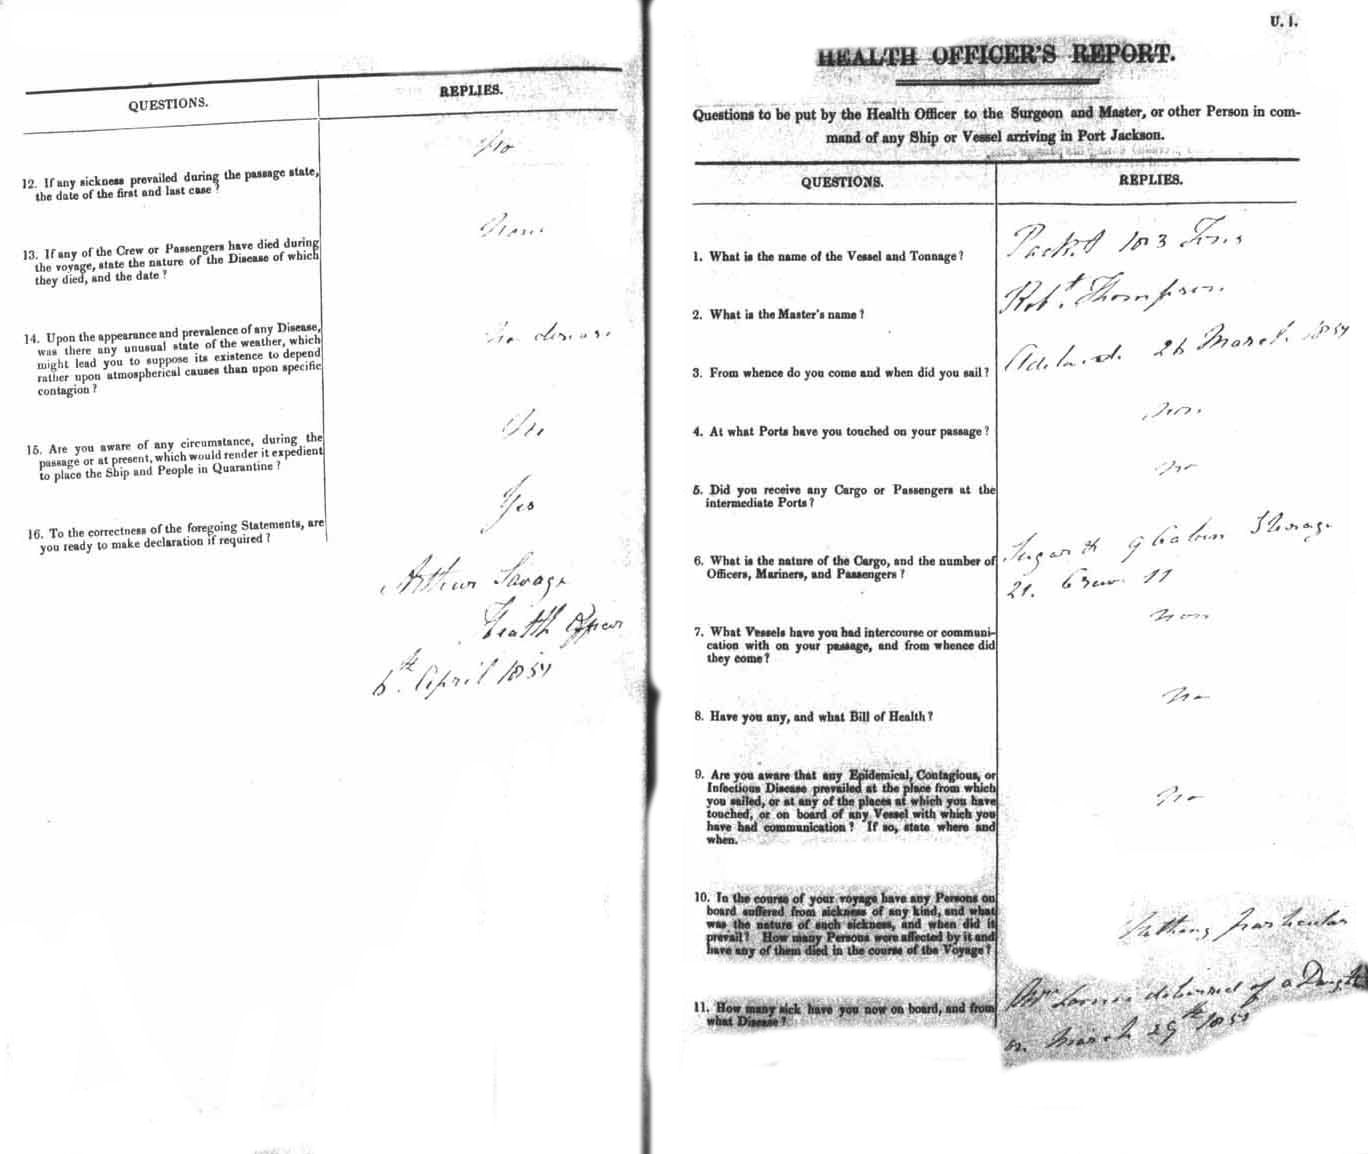 QUESTIONS.
REPLIES.
No
12. If any sickness prevailed during the passage state,
the date of the first and last case?
None
13. If any of the Crew or Passengers have died during
the voyage, state the nature of the Disease of which
they died, and the date?
14. Upon the appearance and prevalence of any Disease,
was there any unusual state of the weather, which
might lead you to suppose its existence to depend
rather upon atmospherical causes than upon specific
contagion?
No disease
15. Are you aware of any circumstance, during the
passage or at present, which would render it expedient
to place the Ship and People in Quarantine?
No
16. To the correctness of the foregoing Statements, are
you ready to make declaration if required?
Yes
Arthur Savage
Health Officer
6th. April 1854
U. 1.
HEALTH OFFICER'S REPORT.
Questions to be put by the Health Officer to the Surgeon and Master, or other Person in com-
mand of any Ship or Vessel arriving in Port Jackson.
QUESTIONS.
REPLIES.
1. What is the name of the Vessel and Tonnage?
Packet 183 Tons
2. What is the Master's name?
Robt. Thompson
3. From whence do you come and when did you sail?
Adelaide 26 March 1854
4. At what Ports have you touched on your passage?
None
5. Did you receive any Cargo or Passengers at the
intermediate Ports?
No
6. What is the nature of the Cargo, and the number of
Officers, Mariners, and Passengers?
Sugar &c 9 Cabin Steerage
21. Crew 11
7. What Vessels have you had intercourse or communi-
cation with on your passage, and from whence did
they come?
None
8. Have you any, and what Bill of Health?
No
9. Are you aware that any Epidemical, Contagious, or
Infectious Disease prevailed at the place from which
you sailed, or at any of the places at which you have
touched, or on board of any Vessel with which you
have had communication? If so, state where and
when.
No
10. In the course of your voyage have any Persons on
board suffered from sickness of any kind, and what
was the nature of such sickness, and when did it
prevail? How many Persons were affected by it and
have any of them died in the course of the Voyage?
Nothing particular
11. How many sick have you now on board, and from
what Disease?
Mrs delivered of a Daughter
on March 29th 1854